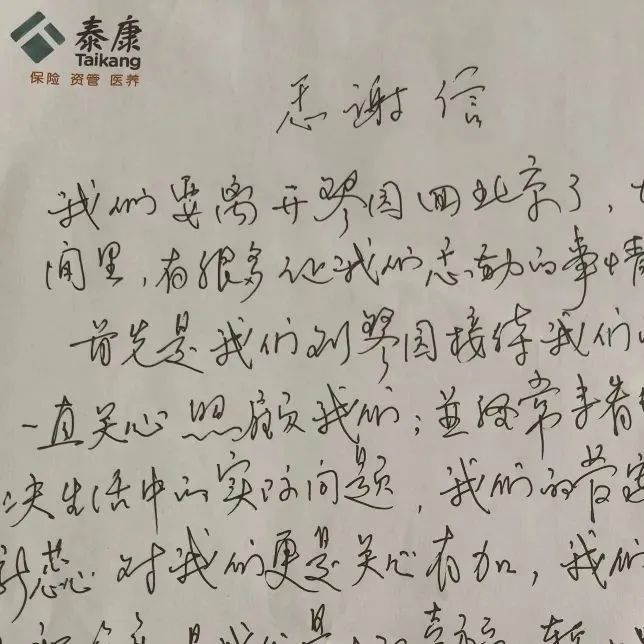 泰康
Taikang
保险 资管 医养
感谢信
我们要离开琴园回北京了，
间里，有很多让我们感动的事情
首先是我们到琴园接待我们
一直关心照顾我们；并经常来看
决生活中的实际问题，我们的管家
新蕊对我们更是关心有加，我们